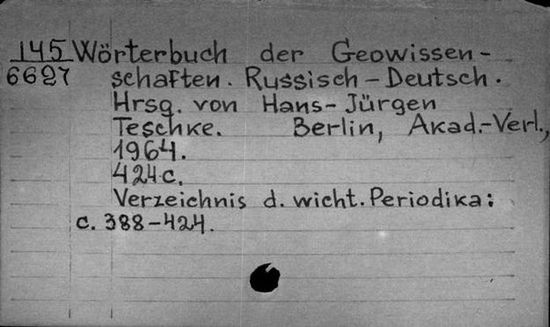 145 Wörterbuch der Geowissen-
6627 schaften. Russisch-Deutsch.
Hrsg. von Hans-Jürgen
Teschke. Berlin, Akad.-Verl.,
1964.
424 c.
Verzeichnis d. wicht. Periodika:
c. 388-424.